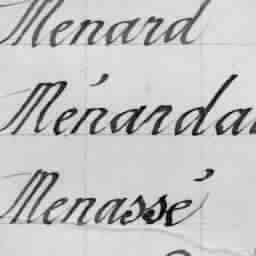 Menard
Ménarda
Menassé